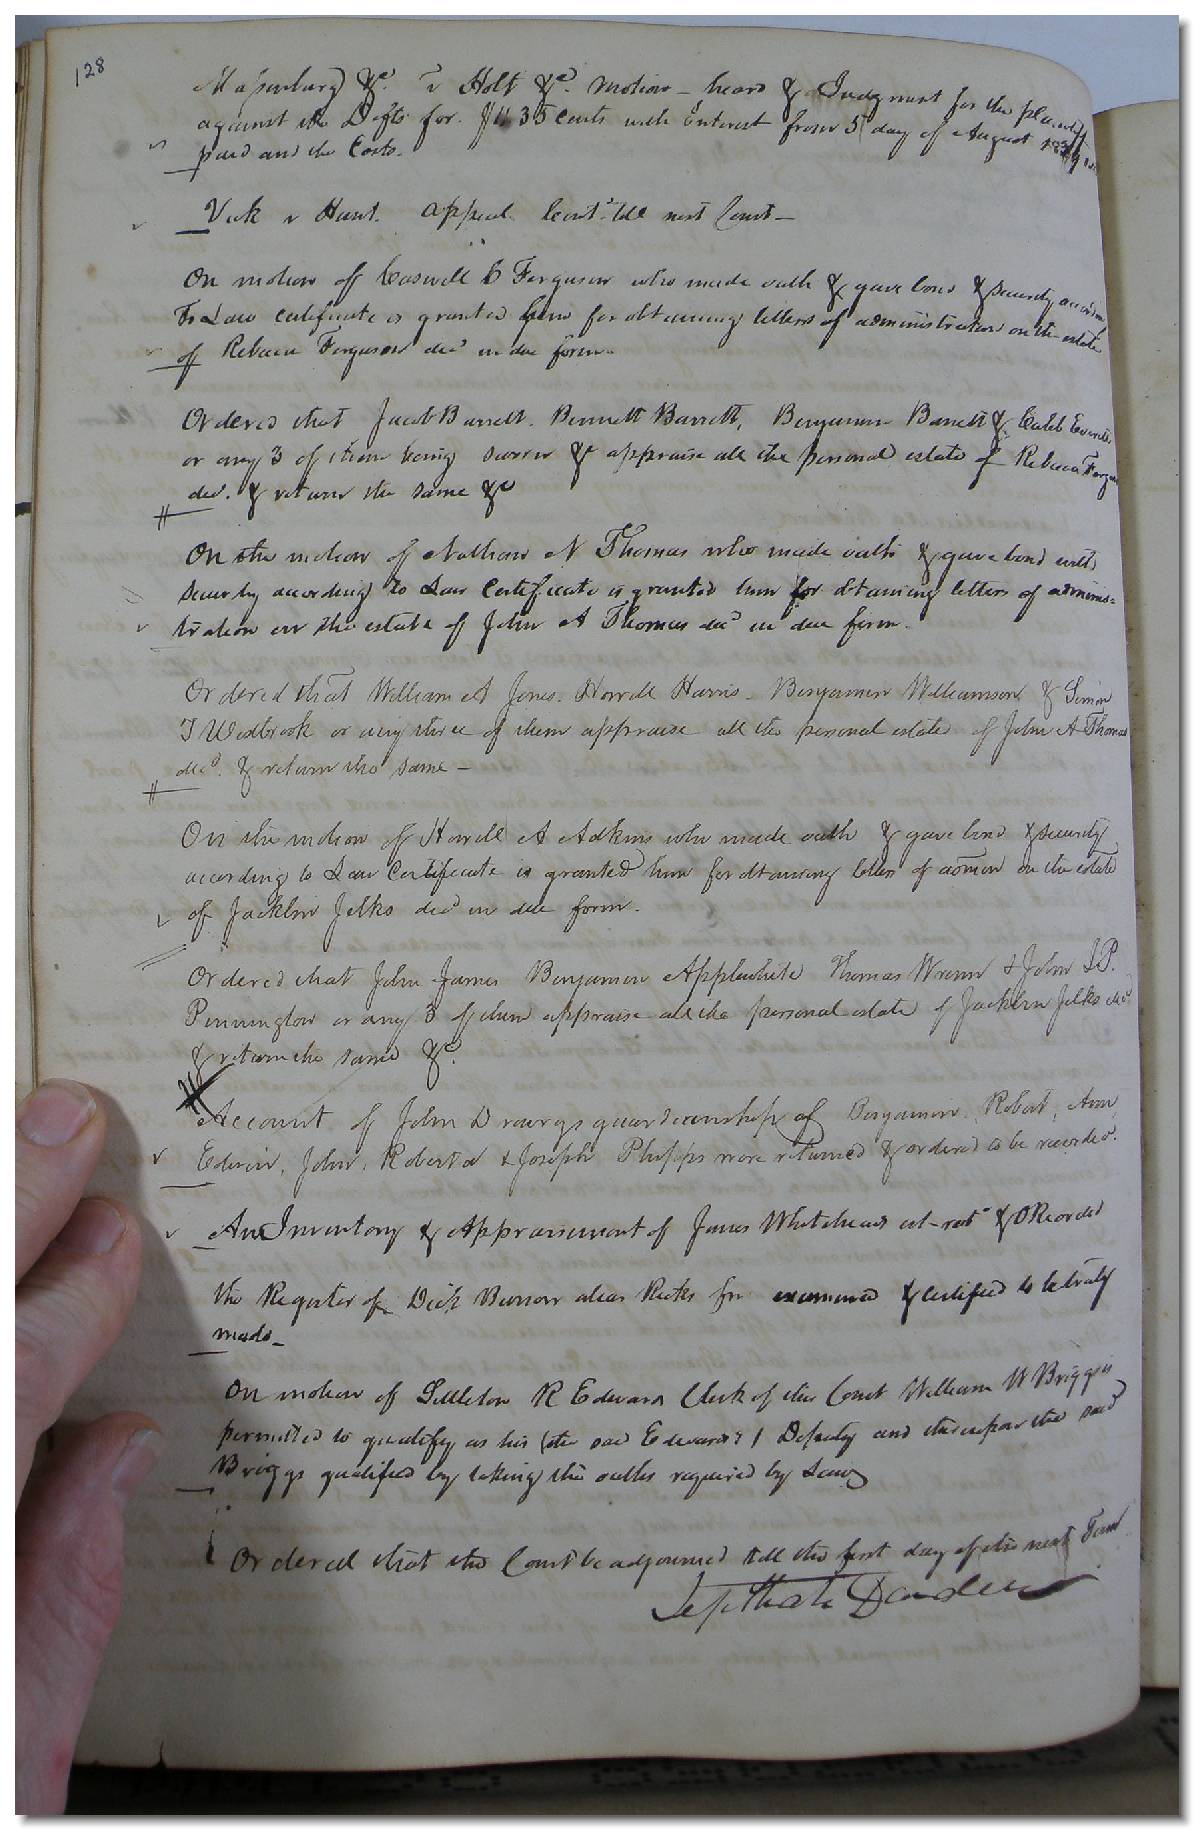 128
Massenburg &c. v Holt &c. motion – heard & Judgment for the plaintiff
against the Defts for $11.35 cents with Interest from 5 day of August
paid and the Costs.
Vick v Hunt. appeal Cont.d till next Court –
On motion of Caswell C Ferguson who made oath & gave bond & security according
To Law Certificate is granted him for obtaining letters of administration on the estate
of Rebecca Ferguson decd in due form.
Ordered that Jacob Barrett. Bennett Barrett, Benjamin Barrett & Caleb
or any 3 of them being sworn & appraise all the personal estate of Rebecca
dec. & return the same &c
On the motion of Nathan N Thomas who made oath & gave bond with
security according to Law Certificate is granted him for obtaining letters of adminis=
tration on the estate of John A Thomas decd in due form.
Ordered that William A Jones. Howell Harris. Benjamin Williamson & Simon
T Westbrook or any three of them appraise all the personal estate of John A Thomas
decd. & return the same –
On the motion of Howell A Adkins who made oath & gave bond & security
according to Law Certificate is granted him for obtaining letters of admon on the estate
of Jacklin Jelks decd in due form.
Ordered that John James Benjamin Applewhite Thomas Wrenn & John J. P.
Pennington or any 3 of them appraise all the personal estate of Jacklin Jelks decd
& return the same &c.
Account of John D guardianship of Benjamin, Robert, Ann,
Edwin, John, Roberta & Joseph Phipps were returned & ordered to be recorded.
An Inventory & Appraisement of James Whiteheads est – retd & O Recorded
the Register of Dick Burrow alias Ricks fn examined & certified to be truly
made –
On motion of Littleton R Edwards Clerk of this Court William W Briggs is
permitted to qualify as his (the said Edwards) Deputy and thereupon the said
Briggs qualified by taking the oaths required by Law
Ordered that the Court be adjourned till the first day of the next Term
Jepthah Darden